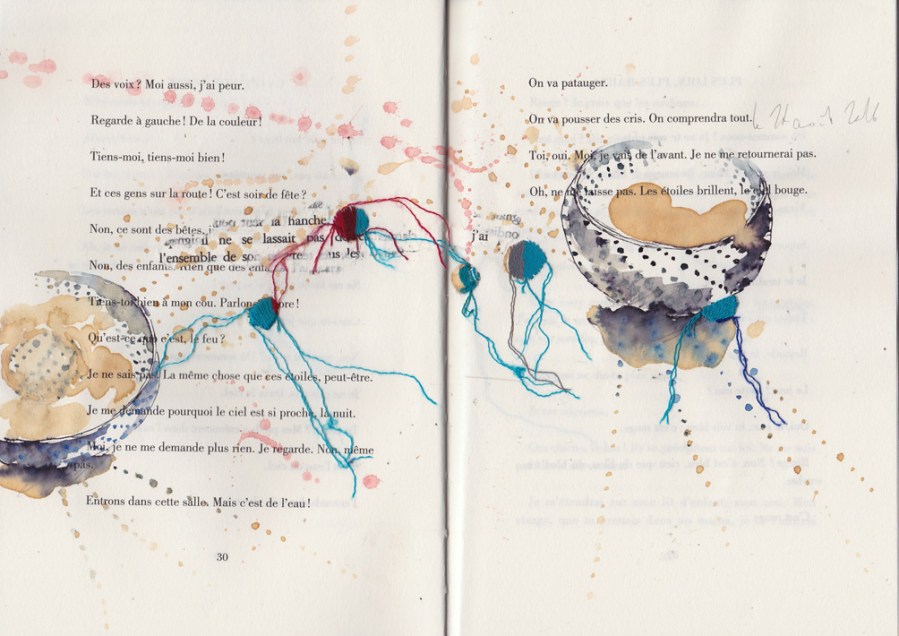 Des voix ? Moi aussi, j'ai peur.
Regarde à gauche ! De la couleur !
Tiens-moi, tiens-moi bien !
Et ces gens sur la route ! C'est soir de fête ?
hanche
Non, ce sont des bêtes.
il ne se lassait pas
l'ensemble de
Non, des enfants. Rien que des
Tiens-toi bien à mon cou.
Qu'est-ce que c'est, le feu ?
Je ne sais pas. La même chose que ces étoiles, peut-être.
Je me demande pourquoi le ciel est si proche, la nuit.
Moi, je ne me demande plus rien. Je regarde. Non, même
pas.
Entrons dans cette salle. Mais c'est de l'eau !
30
On va patauger.
On va pousser des cris. On comprendra tout.
Toi, oui. Moi, je vais de l'avant. Je ne me retournerai pas.
Oh, ne me laisse pas. Les étoiles brillent, le ciel bouge.
j'ai